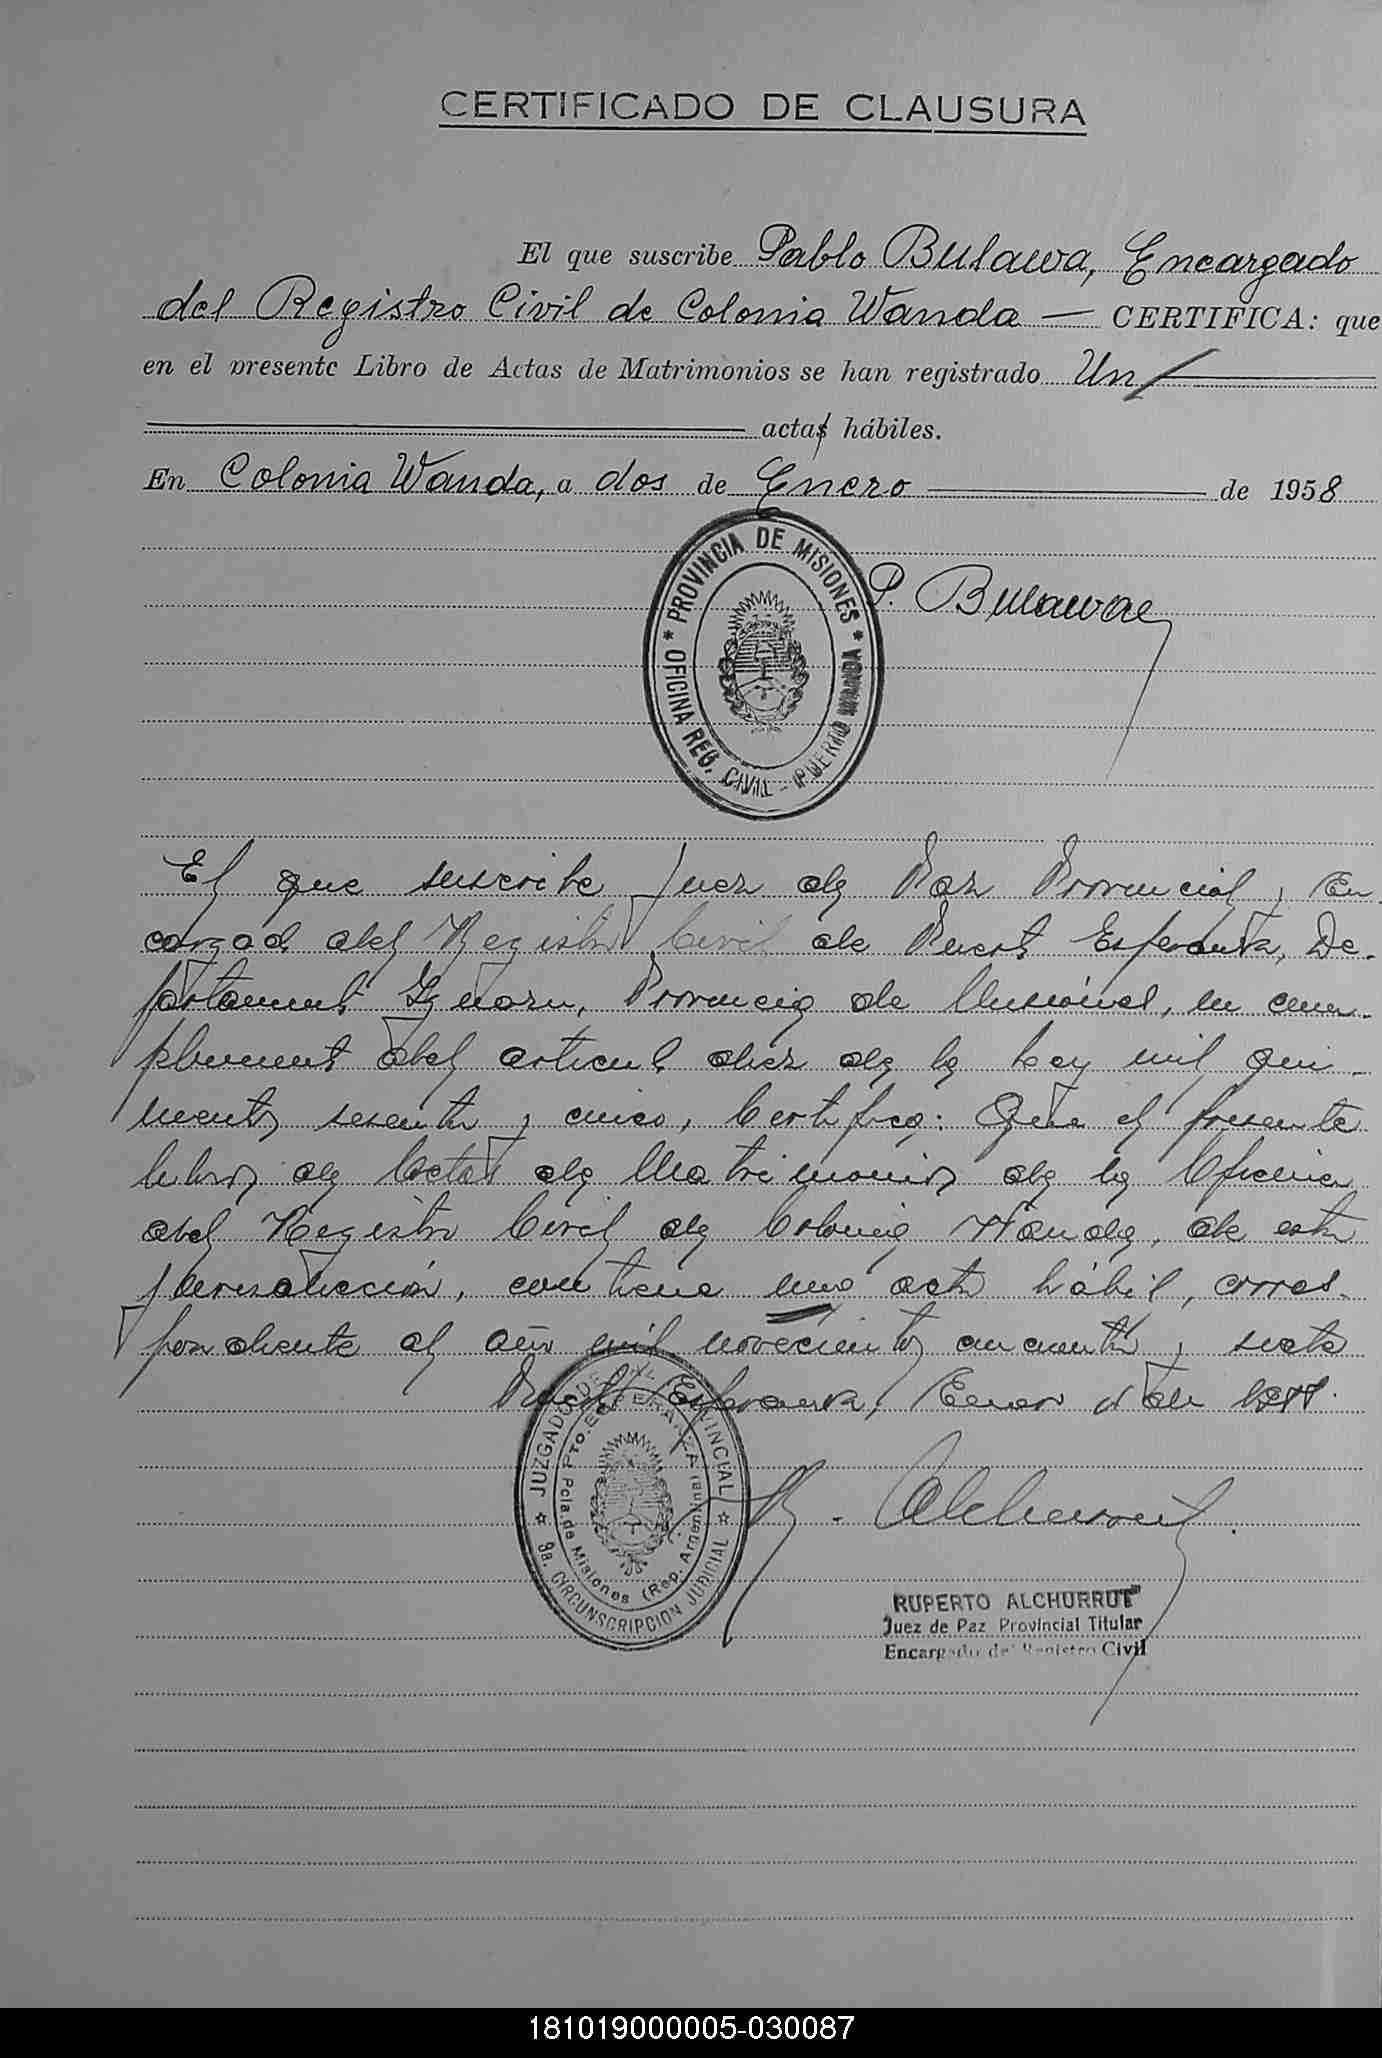 CERTIFICADO DE CLAUSURA
El que suscribe Pablo Bulawa, Encargado
del Registro Civil de Colonia Wanda — CERTIFICA: que
en el presente Libro de Actas de Matrimonios se han registrado Un
actas hábiles.
En Colonia Wanda, a dos de Enero de 1958
* PROVINCIA DE MISIONES *
OFICINA REG. CIVIL - PUERTO WANDA
P. Bulawa
El que suscribe Juez de Paz Provincial y En
cargado del Registro Civil de Puerto Esperanza, De-
partamento Iguazu, Provincia de Misiones, en cum-
plimiento del articulo diez de la Ley mil qui-
nientos sesenta y cinco, Certifica: Que el presente
libro de Actas de Matrimonios de la Oficina
del Registro Civil de Colonia Wanda, de esta
jurisdicción, contiene una acta hábil, corres-
pondiente al año mil novecientos cincuenta y siete
Puerto Esperanza, Enero de 1958.
JUZGADO DE PAZ PROVINCIAL
PTO. ESPERANZA
Pcia. de Misiones (Rep. Argentina)
3a. CIRCUNSCRIPCION JUDICIAL
R. Alchurrut
RUPERTO ALCHURRUT
Juez de Paz Provincial Titular
Encargado del Registro Civil
181019000005-030087